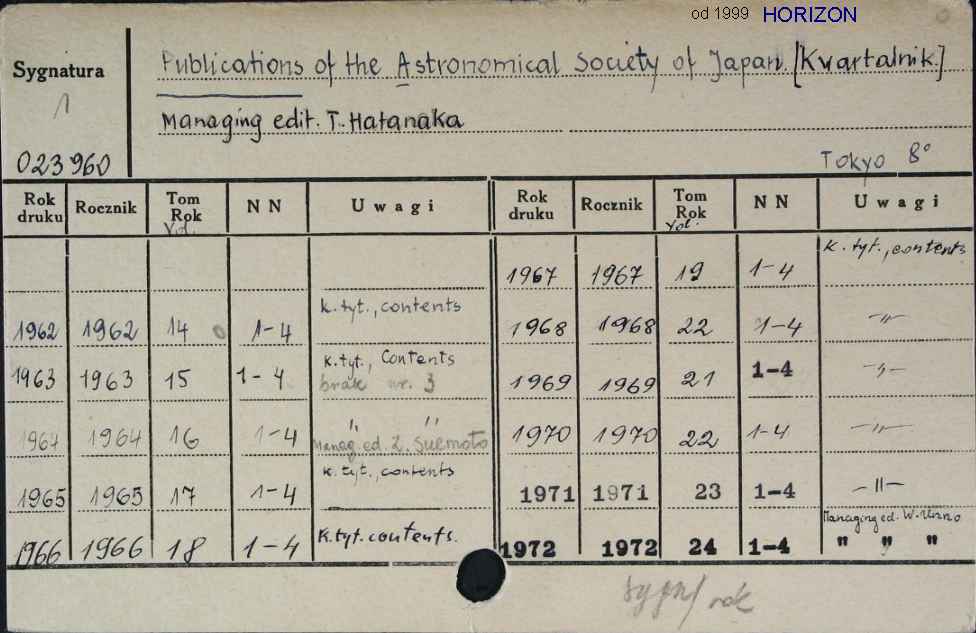 od 1999 HORIZON
Sygnatura
1
023960
Publications of the Astronomical Society of Japan. [Kwartalnik.]
Managing edit. T. Hatanaka
Tokyo 8°
Rok druku | Rocznik | Tom Rok Vol. | NN | Uwagi | Rok druku | Rocznik | Tom Rok Vol. | NN | Uwagi
1967 | 1967 | 19 | 1-4 | k. tyt., contents
1962 | 1962 | 14 | 1-4 | k. tyt., contents | 1968 | 1968 | 22 | 1-4 | -"-
1963 | 1963 | 15 | 1-4 | k. tyt., Contents brak nr. 3 | 1969 | 1969 | 21 | 1-4 | -"-
1964 | 1964 | 16 | 1-4 | " " Manag. ed. Z. Suemoto | 1970 | 1970 | 22 | 1-4 | -"-
1965 | 1965 | 17 | 1-4 | k. tyt., contents | 1971 | 1971 | 23 | 1-4 | -"-
1966 | 1966 | 18 | 1-4 | k. tyt. contents. | 1972 | 1972 | 24 | 1-4 | Managing ed. W. Unno " " "
sygn/ rok